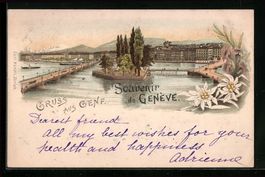 Gruss aus Genf.
Souvenir
de Genève.
Dearest friend
All my best wishes for your
health and happiness
Adrienne